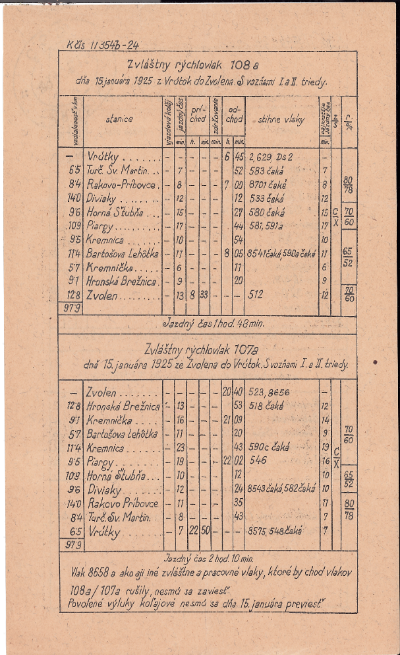 K čís 11354/3-24
Zvláštny rýchlovlak 108 a
dňa 15. januára 1925 z Vrútok do Zvolena S vozňami I. a II. triedy.
vzdialenosť v km stanice jazdný čas prí-chod od-chod stihne vlaky
min. h. min. min. h. min. min.
— Vrútky . . . . . . . — — — — 6 45 2, 629 Ds 2 —
6·5 Turč. Sv. Martin . . . — 7 — — — 52 583 čaká 7
8·4 Rakovo-Príbovce . — 8 — — — 7 00 8701 čaká 8 80/78
14·0 Diviaky . . . . . . — 12 — — — 12 533 čaká 12
9·6 Horná Štubňa . . . — 15 — — — 27 580 čaká 15 70/60
10·9 Piargy . . . . . . — 17 — — — 44 581, 591a 17
9·5 Kremnica . . . . . — 10 — — — 54 10
11·4 Bartošova Lehôtka — 11 — — — 8 05 8541 čaká, 580a čaká 11 65/52
5·7 Kremnička . . . . — 6 — — — 11 6
9·1 Hronská Breznica . — 9 — — — 20 9
12·8 Zvolen . . . . . . — 13 8 33 — — — 512 12 70/60
97·9
Jazdný čas 1 hod. 48 min.
Zvláštny rýchlovlak 107a
dňa 15. januára 1925 ze Zvolena do Vrútok. S vozňami I. a II. triedy.
— Zvolen . . . . . . — — — — 20 40 523, 8656 —
12·8 Hronská Brežnica . — 13 — — — 53 518 čaká 12
9·1 Kremnička . . . . — 16 — — — 21 09 14
5·7 Bartošova Lehôtka — 11 — — — 20 9 70/60
11·4 Kremnica . . . . — 23 — — — 43 590c čaká 19
9·5 Piargy . . . . . . — 19 — — — 22 02 546 16
10·9 Horná Štubňa . . . — 10 — — — 12 10 65/52
9·6 Diviaky . . . . . — 12 — — — 24 8543 čaká, 582 čaká 10
14·0 Rakovo Príbovce — 11 — — — 35 11 80/78
8·4 Turč. Sv. Martin. — 8 — — — 43 7
6·5 Vrútky . . . . . — 7 22 50 — — — 5575, 548 čaká 7
97·9
Jazdný čas 2 hod. 10 min.
Vlak 8658 a ako aj iné zvláštne a pracovné vlaky, ktoré by chod vlakov
108 a / 107a rušily, nesmú sa zaviesť.
Povolené výluky koľajové nesmú sa dňa 15. januára previesť